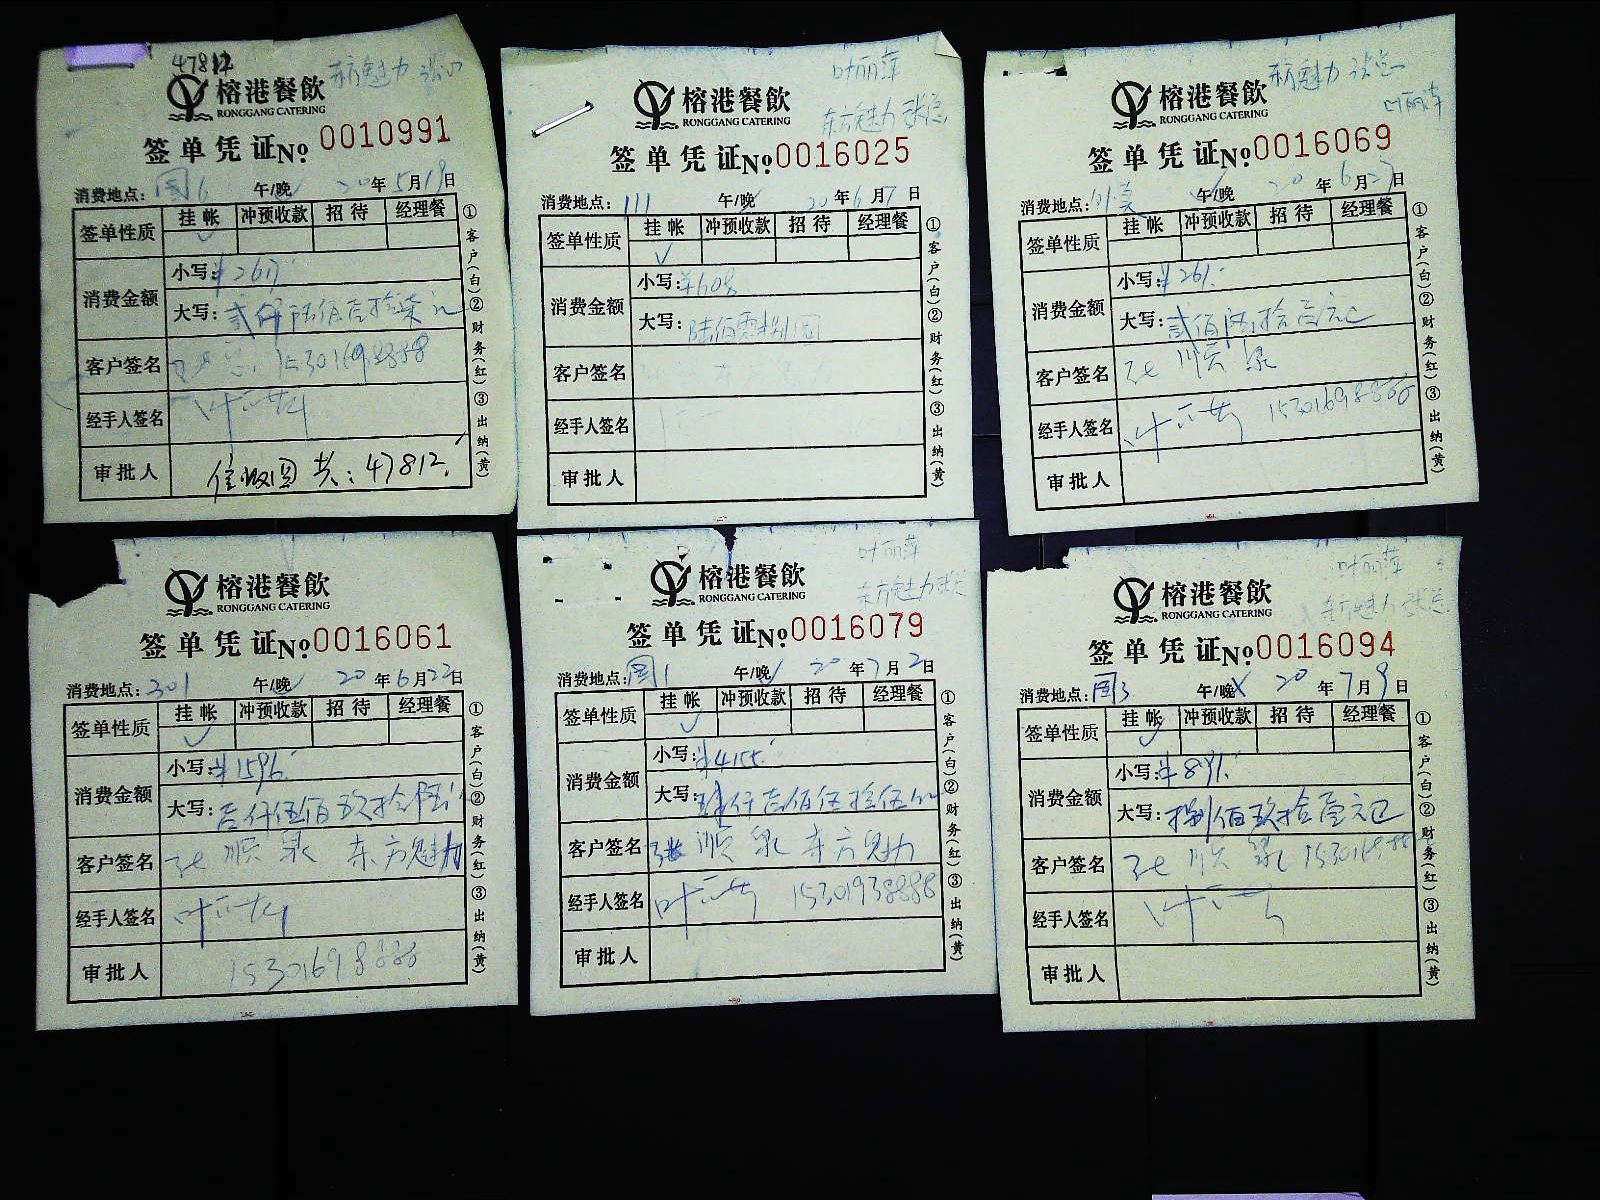 47812
东方魅力 张总
榕港餐飲
RONGGANG CATERING
签单凭证 No. 0010991
消费地点：国6 午/晚 20年5月19日
签单性质 挂帐 冲预收款 招待 经理餐
✓
消费金额 小写：¥2617.
大写：贰仟陆佰壹拾柒元
客户签名 15301698888
经手人签名
审批人 共：47812.
①客户(白)②财务(红)③出纳(黄)
叶丽萍
东方魅力 张总
榕港餐飲
RONGGANG CATERING
签单凭证 No. 0016025
消费地点：111 午/晚 20年6月7日
签单性质 挂帐 冲预收款 招待 经理餐
✓
消费金额 小写：¥608
大写：陆佰零捌圆
客户签名
经手人签名
审批人
①客户(白)②财务(红)③出纳(黄)
东方魅力 张总
叶丽萍
榕港餐飲
RONGGANG CATERING
签单凭证 No. 0016069
消费地点：外卖 午/晚 20年6月27日
签单性质 挂帐 冲预收款 招待 经理餐
消费金额 小写：¥261.
大写：贰佰陆拾壹元正
客户签名 张顺
经手人签名 叶 15301698888
审批人
①客户(白)②财务(红)③出纳(黄)
榕港餐飲
RONGGANG CATERING
签单凭证 No. 0016061
消费地点：301 午/晚 20年6月22日
签单性质 挂帐 冲预收款 招待 经理餐
✓
消费金额 小写：¥1596.
大写：壹仟伍佰玖拾陆元
客户签名 张顺 东方魅力
经手人签名 叶
审批人 15301698888
①客户(白)②财务(红)③出纳(黄)
叶丽萍
东方魅力 张总
榕港餐飲
RONGGANG CATERING
签单凭证 No. 0016079
消费地点：国1 午/晚 20年7月2日
签单性质 挂帐 冲预收款 招待 经理餐
✓
消费金额 小写：¥4155.
大写：肆仟壹佰伍拾伍元
客户签名 张顺 东方魅力
经手人签名 叶 15301938888
审批人
①客户(白)②财务(红)③出纳(黄)
叶丽萍
东方魅力 张总
榕港餐飲
RONGGANG CATERING
签单凭证 No. 0016094
消费地点：国3 午/晚 20年7月9日
签单性质 挂帐 冲预收款 招待 经理餐
✓
消费金额 小写：¥891.
大写：捌佰玖拾壹元正
客户签名 张顺
经手人签名 叶
审批人
①客户(白)②财务(红)③出纳(黄)